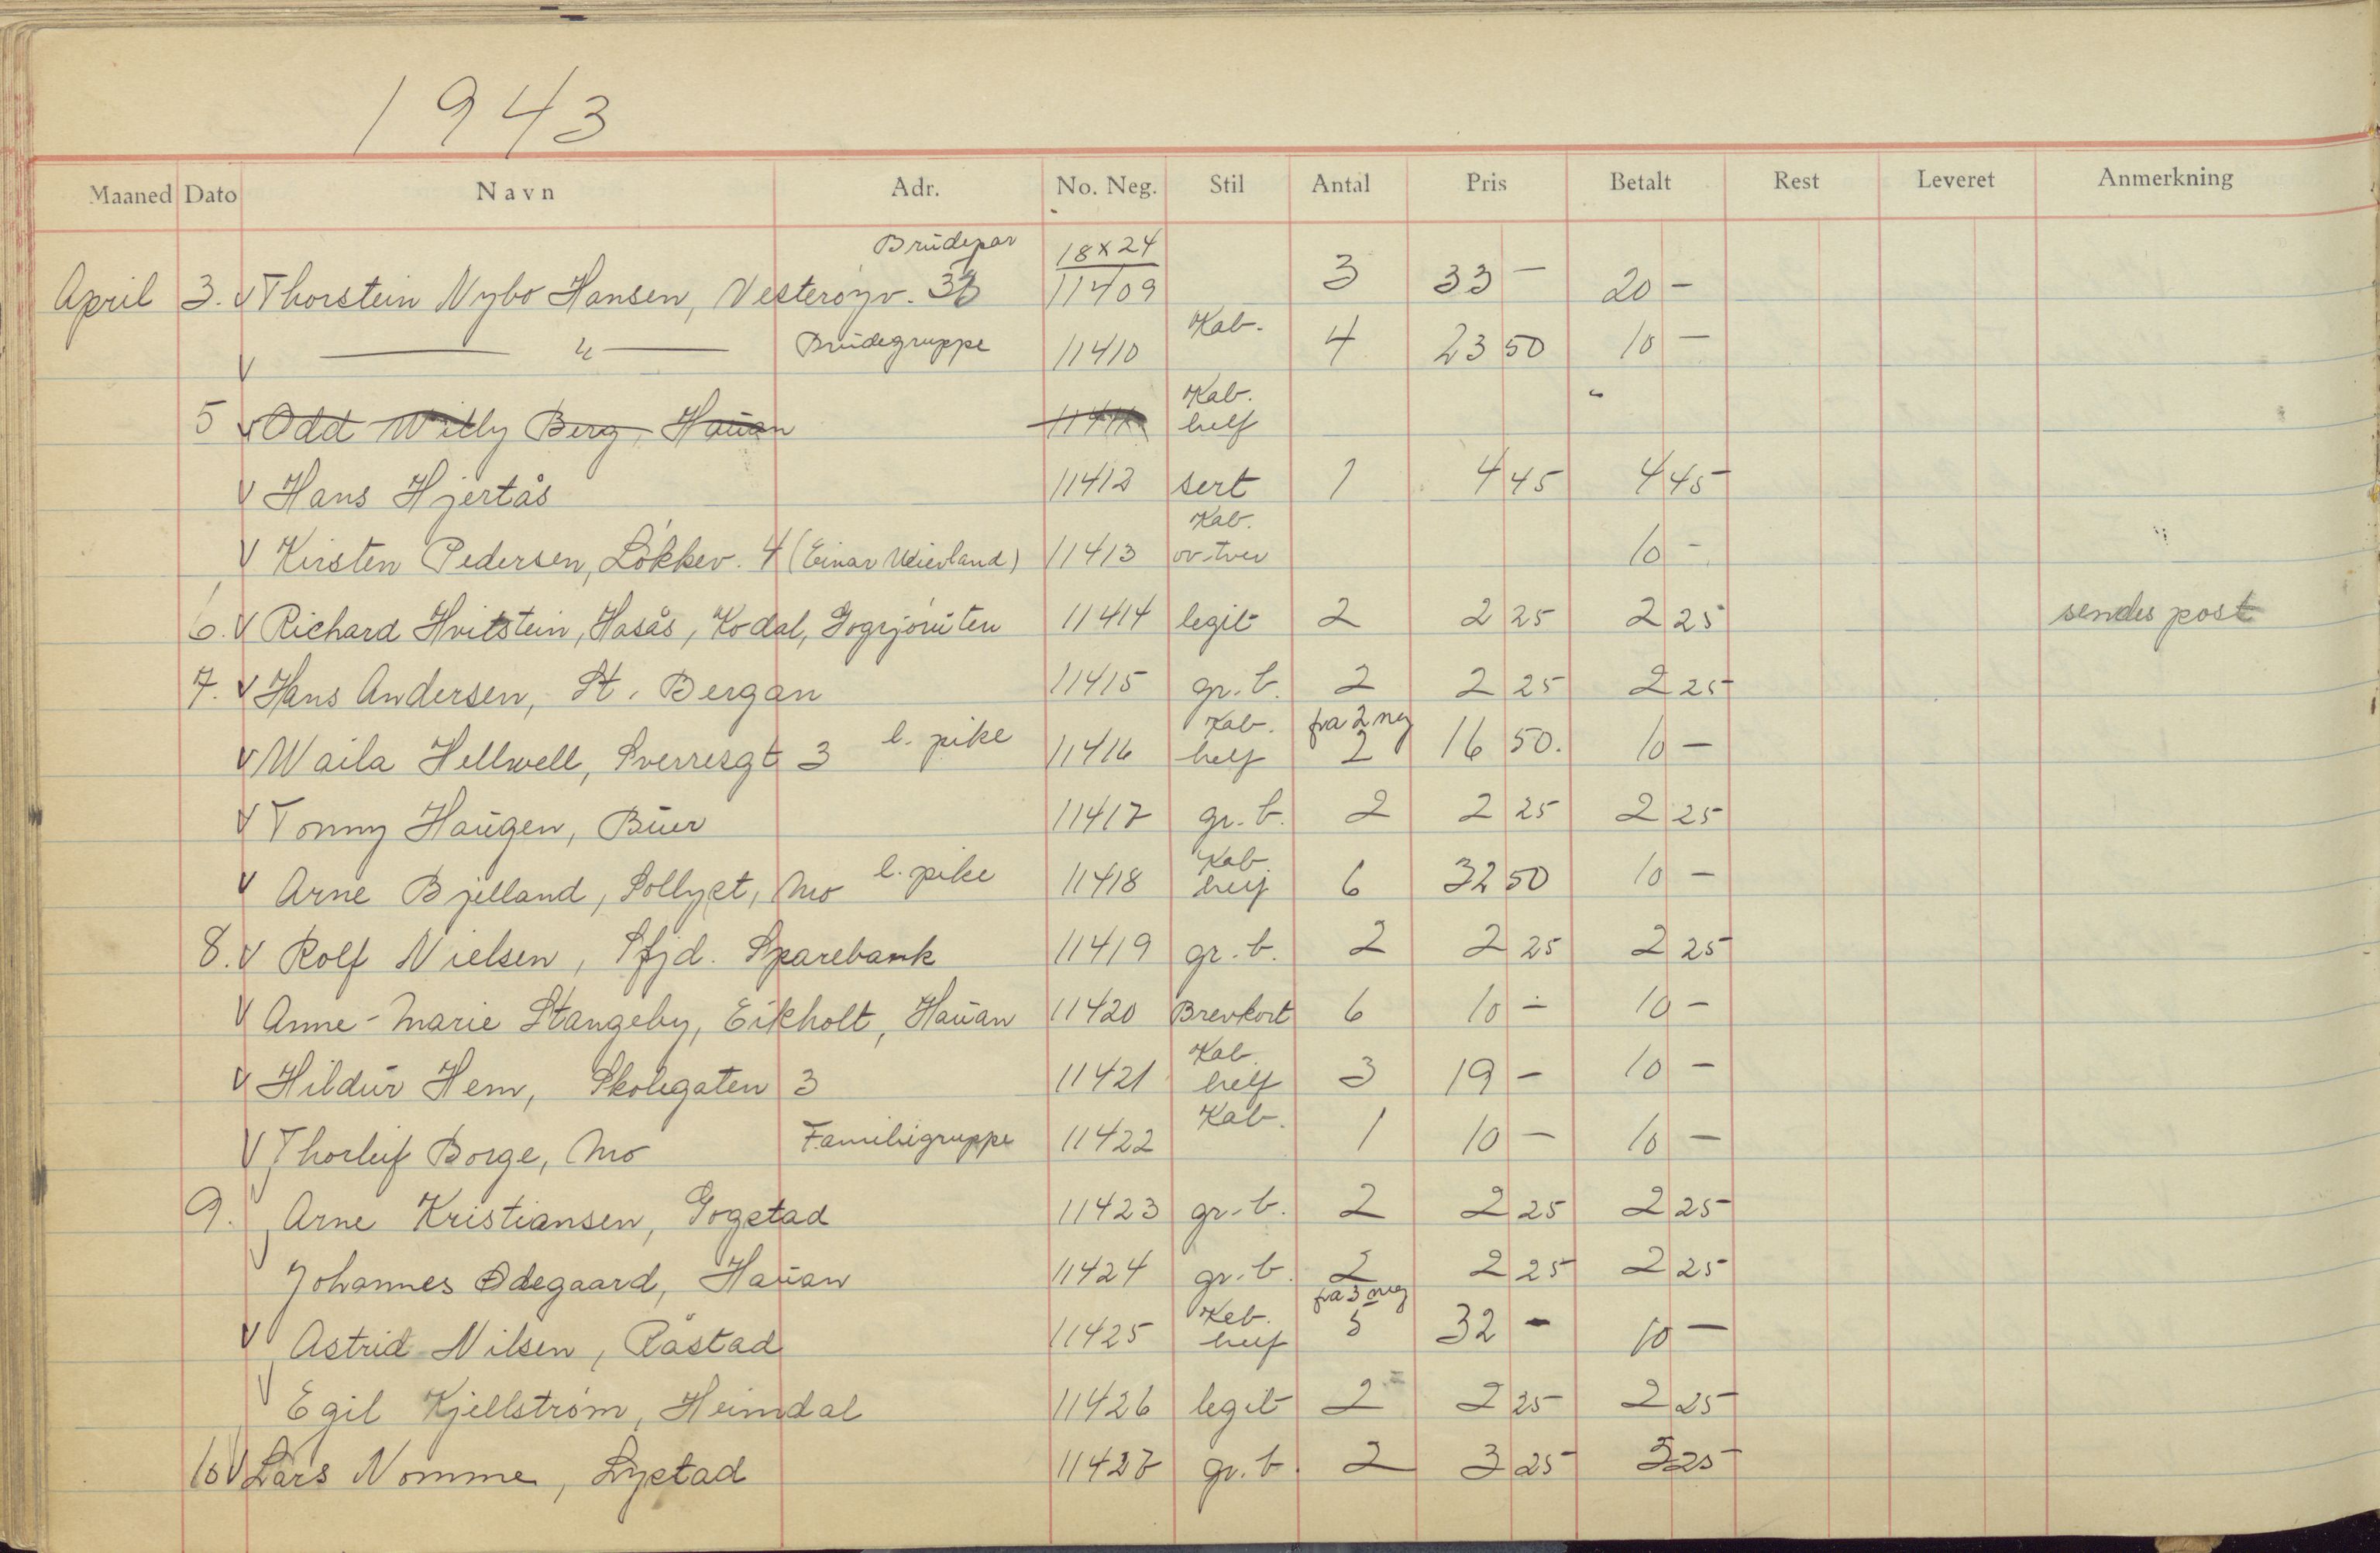 1943
Maaned Dato Navn Adr. No. Neg. Stil Antal Pris Betalt Rest Leveret Anmerkning
Brudepar 18x24
April 3. V Thorstein Nybo Hansen, Vesterøyv. 11409 3 33 - 20 -
V — " — Brudegruppe 11410 Kab. 4 23 50 10 -
Kab.
5 V Odd Willy Berg, Hauan 11411 helf
V Hans Hjertås 11412 sert 1 4 45 4 45
Kab.
V Kirsten Pedersen, Løkkev. 4 (Einar Weierland) 11413 10 -
6. V Richard Hvitstein, Hasås, Kodal, 11414 legit 2 2 25 2 25 sendes post
7. V Hans Andersen, St. Bergan 11415 gr. b. 2 2 25 2 25
l. pike Kab. fra 2 neg
V Waila Hellwell, Sverresgt 3 11416 helf 2 16 50. 10 -
V Tonny Haugen, Buer 11417 gr. b. 2 2 25 2 25
l. pike Kab
V Arne Bjelland, Sollyst, Mo 11418 helf 6 32 50 10 -
8. V Rolf Nielsen, Sfjd. Sparebank 11419 gr. b. 2 2 25 2 25
V Anne-Marie Stangeby, Eikholt, Hauan 11420 Brevkort 6 10 - 10 -
Kab.
V Hildur Hem, Skolegaten 3 11421 helf 3 19 - 10 -
V Thorleif Borge, Mo Familiegruppe 11422 Kab. 1 10 - 10 -
9. V Arne Kristiansen, Gogstad 11423 gr. b. 2 2 25 2 25
V Johannes Ødegaard, Hauan 11424 gr. b. 2 2 25 2 25
Kab. fra 3 neg
V Astrid Nilsen, Råstad 11425 helf 5 32 - 10 -
V Egil Kjellstrøm, Heimdal 11426 legit 2 2 25 2 25
10 V Lars Nomme, Lystad 11427 gr. b. 2 3 25 3 25